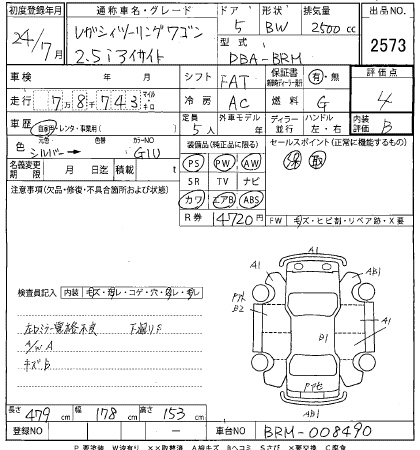 初度登録年月 通称車名・グレード ドア 形状 排気量 出品NO.
24年7月 レガシィツーリングワゴン 2.5iアイサイト 5 BW 2500cc 2573
型式 DBA-BRM
車検 年 月 シフト FAT 保証書 有・無 評価点
走行 7万8千743 マイル キロ 冷房 AC 燃料 G 4
車歴 自家用・レンタ・事業用( ) 定員 5人 外車モデル 年 ディラー 並行 ハンドル 左・右 内装評価 B
色 元色 シルバー → 色替 カラーNO G1U 装備品(純正品に限る) セールスポイント(正常に機能するもの)
PS PW AW 保 取
名義変更期限 月 日迄 積載 t SR TV ナビ
注意事項(欠品・修復・不具合箇所および状態) カワ エアB ABS
R券 14720円 FW キズ・ヒビ割・リペア跡・X要
検査員記入 内装 キズ・汚レ・コゲ・穴・切レ・剥レ
左ドアミラー電格不良 下廻りサ
A/W A
キズ、B
A1
A1 AB1
B2
A1
A1 AB1
B1
長さ 479cm 幅 178cm 高さ 153cm
登録NO 車台NO BRM-008490
P要塗装 W波有り XX取替済 A線キズ Bヘコミ Sさび X要交換 C腐食